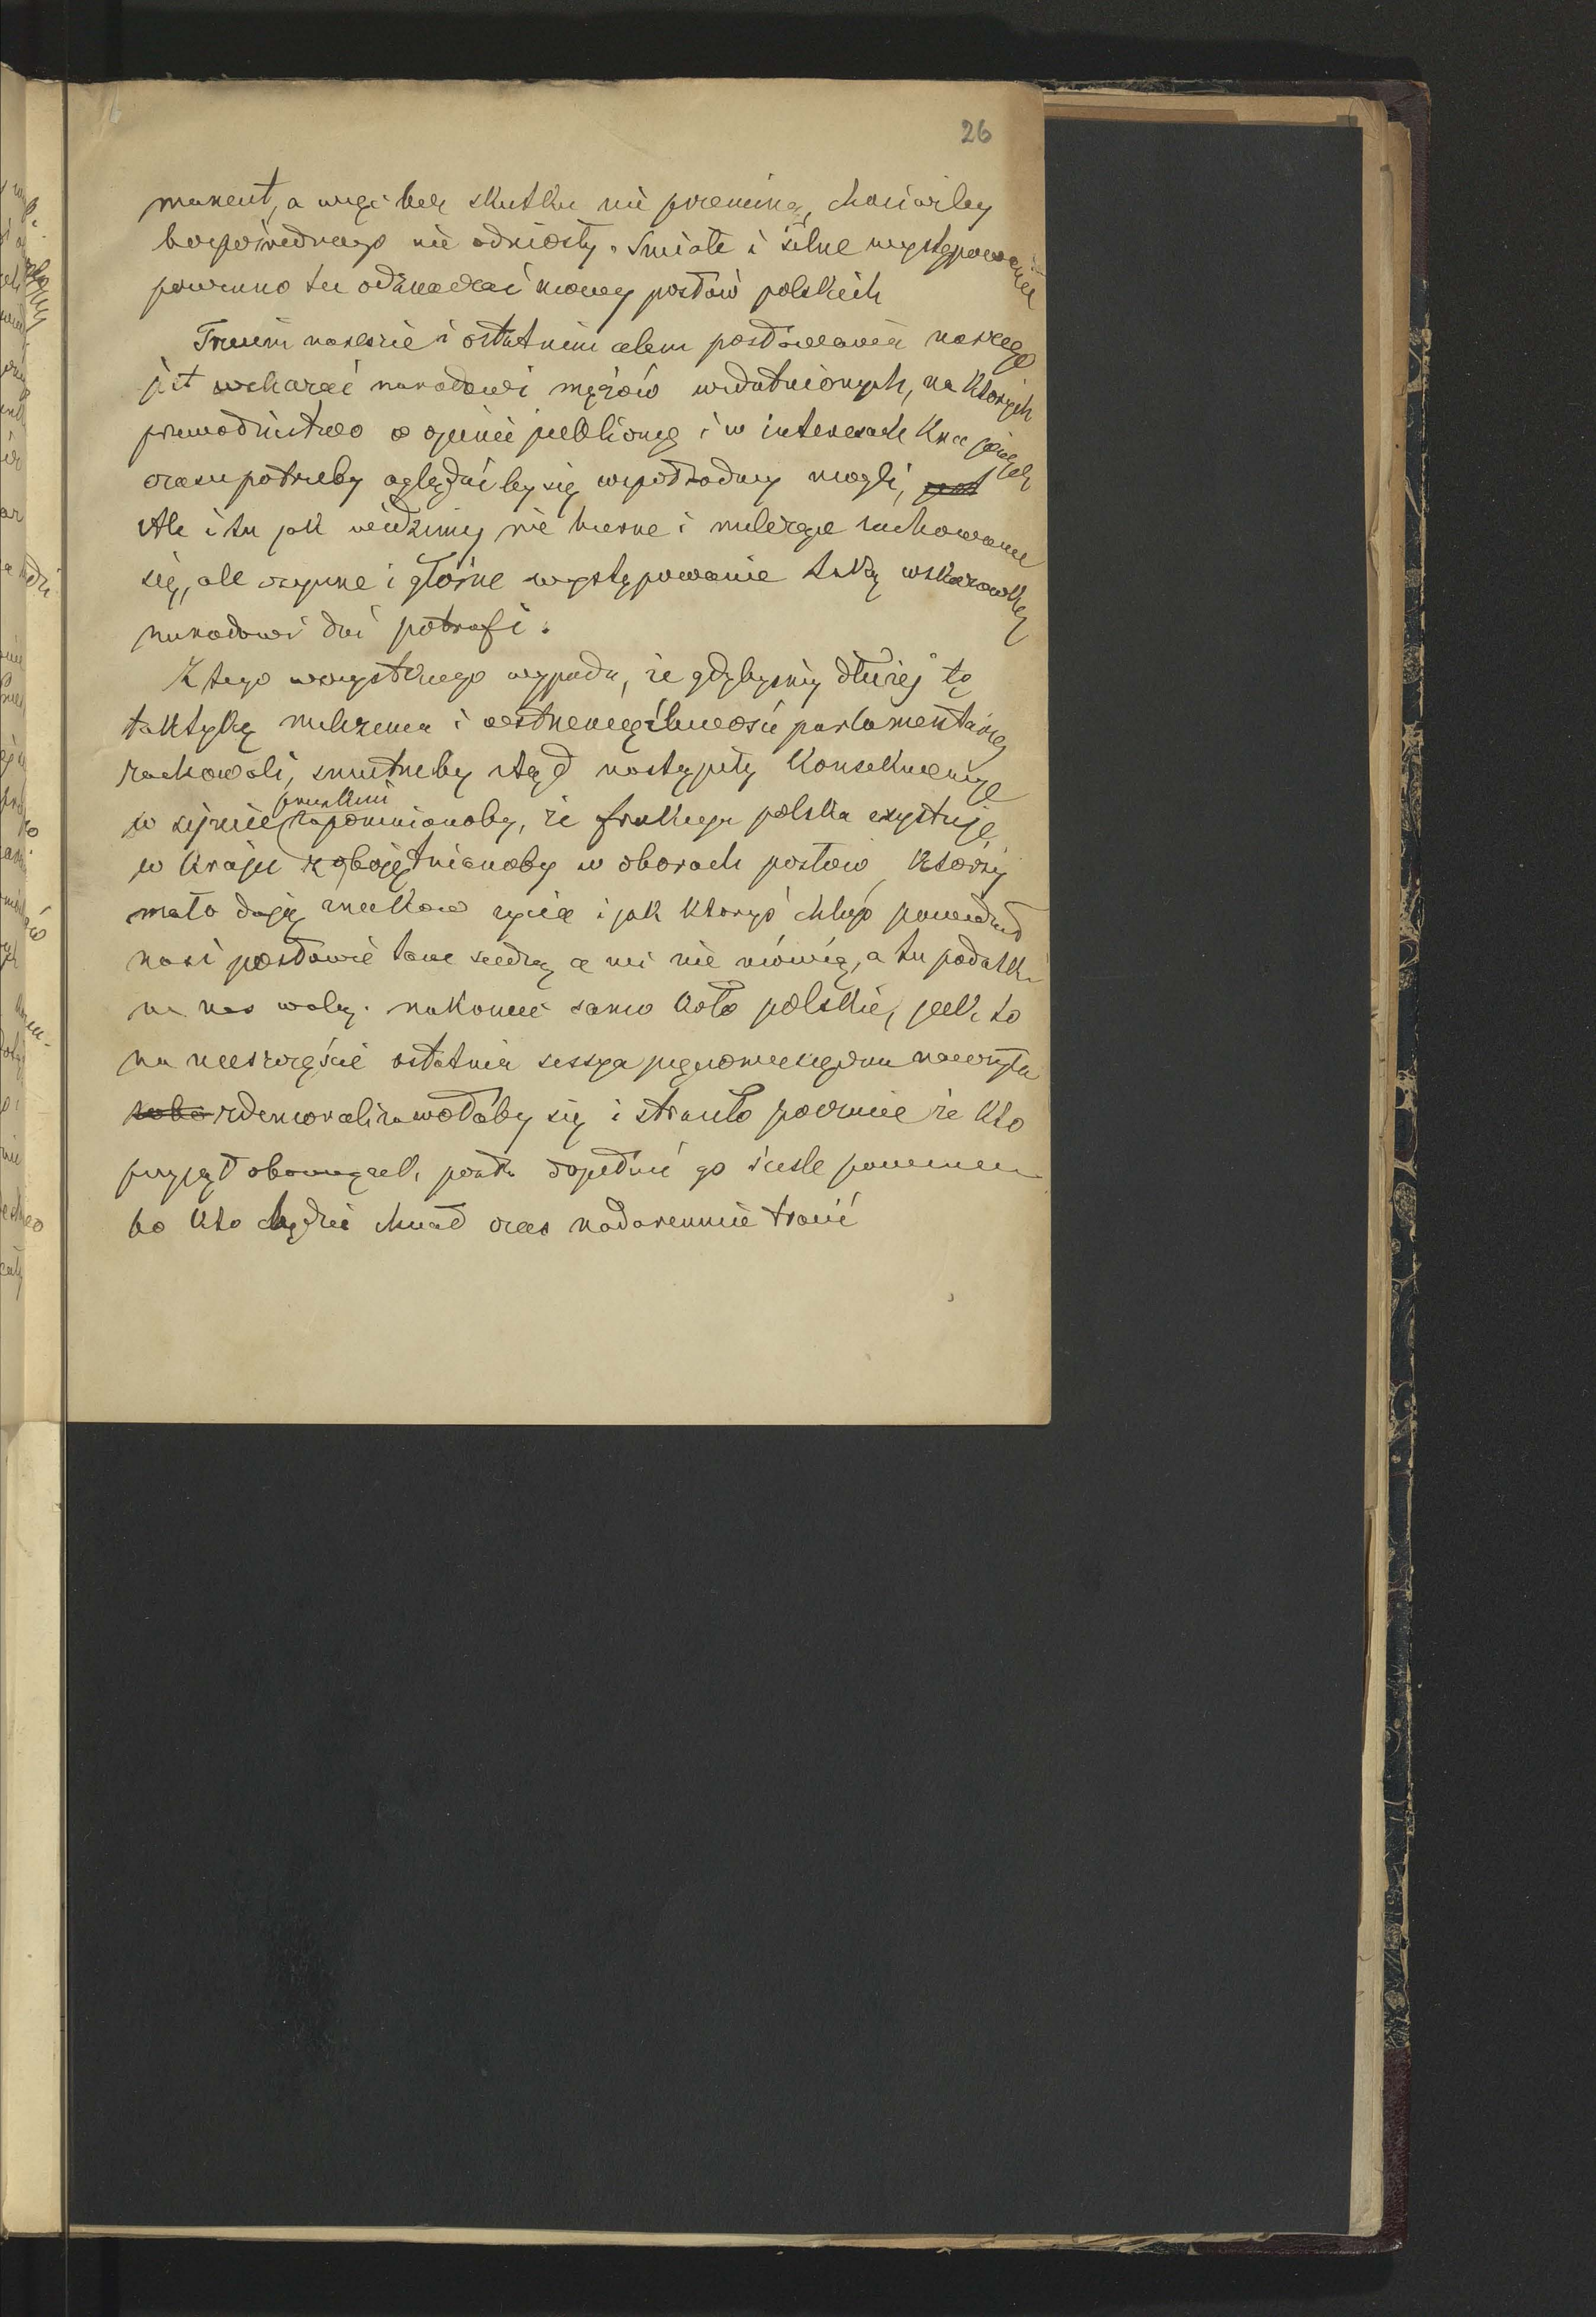 26
manent, a więc bez skutku nie przeminą, chociażby
bezpośredniego nie odniosły. Smiałe i silne występowanie
powinno tu odznaczać mowy posłów polskich
Trzecim nareszcie i ostatnim celem posłowania naszego
jest wskazać narodowi mężów uzdatnionych, na których
przewodnictwo w opinii publicznej i w interesach krajowych
czasu potrzeby oglądać by się współrodacy mogli,
Ale i tu jak widzimy nie bierne i milczące zachowanie
się, ale czynne i głośne występowanie taką wskazówkę
narodowi dać potrafi.
Z tego wszystkiego wypada, że gdybyśmy dłużej tę
taktykę milczenia i parlamentarnej
zachowali, smutneby stąd nastąpiły konsekwencye
pruskim
w sejmie zapomnianoby, że frakcya polska exystuje
w kraju zobojętnianoby w oborach posłów, którzy
mało dają znaków życia i jak któryś chłop powiedział
nasi posłowie tam siedzą a nic nie mówią, a tu podatki
na nas walą. nakoniec samo koło polskie, jak to
na nieszczęście ostatnia sessya pięciomiesięczna nauczyła
zdemoralizowałoby się i straciło poczucie że kto
przyjął obowiązek, posła dopełnić go ściśle powinien
bo kto będzie chciał czas nadaremnie tracić